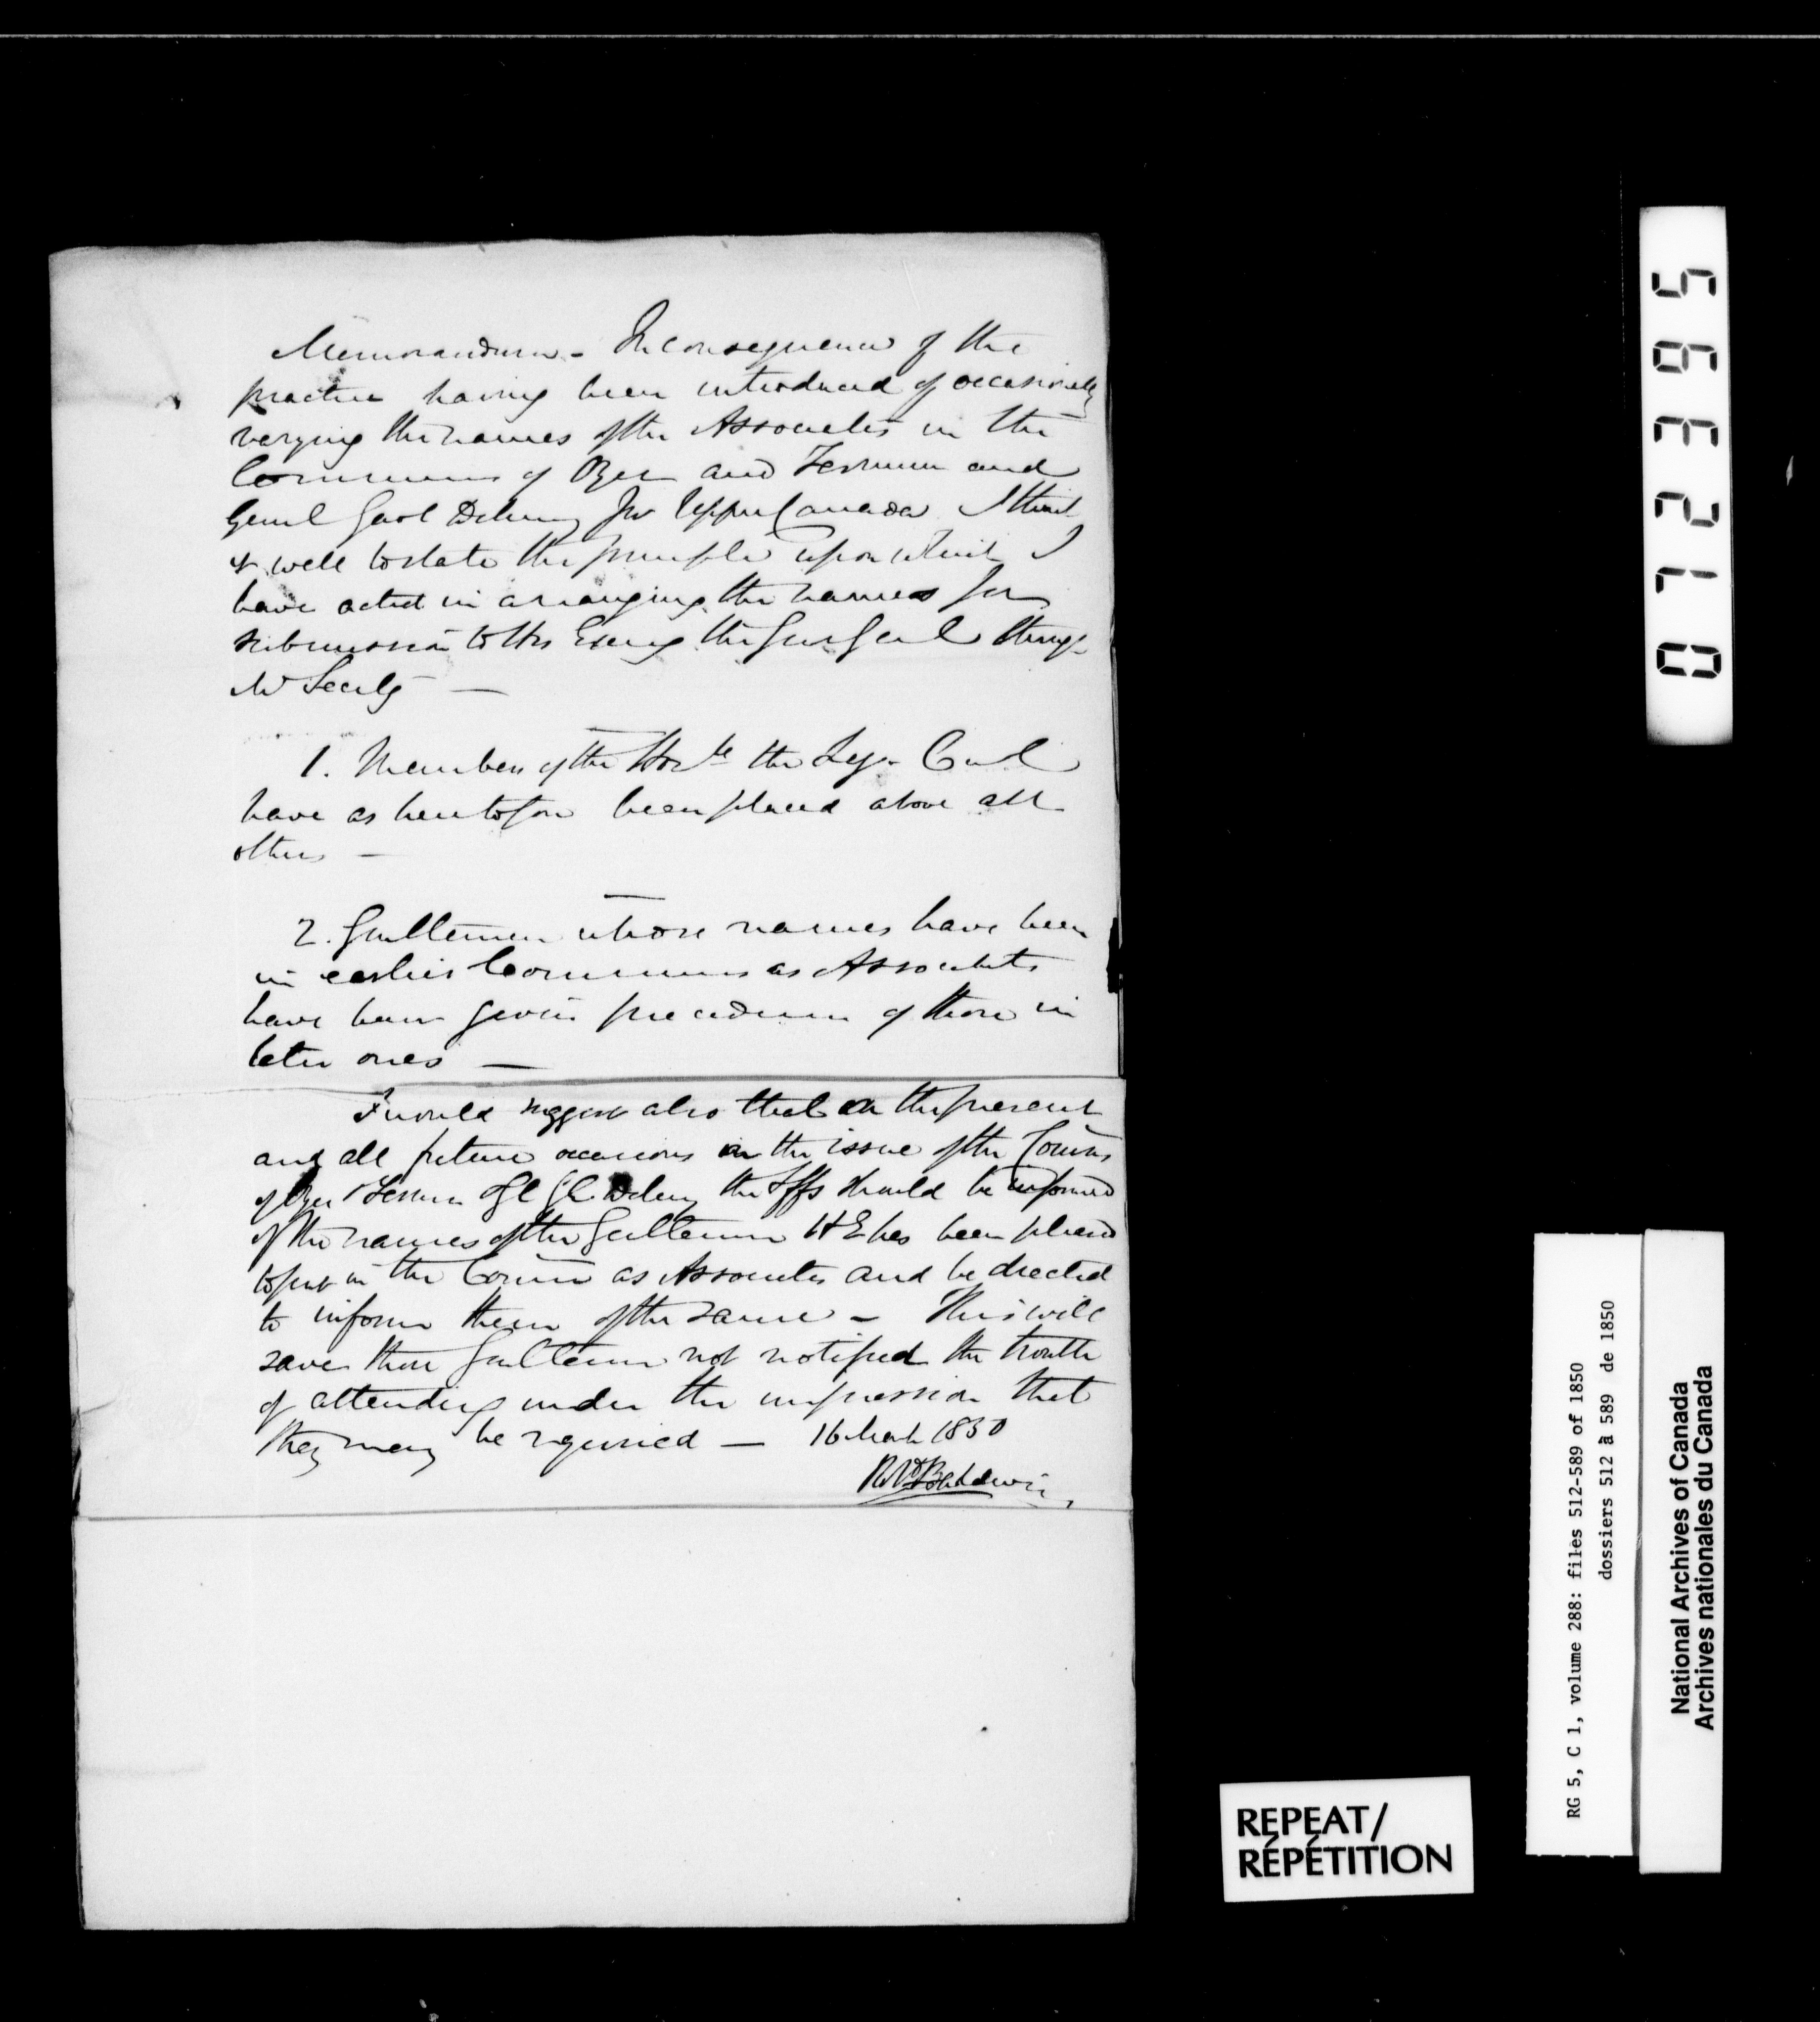 Memorandum - In consequence of the
practice having been introduced of occasionally
varying the names of the Associates in the
Commissions of Oyer and Terminer and
Genl Gaol Delivery for Upper Canada I think
it well to state the principle upon which I
have acted in arranging the names for
submission to His Excy the Gov Genl through
Mr Secty —
1. Members of the Honble the Leg. Cncl
have as heretofore been placed above all
others —
2. Gentlemen whose names have been
in earlier Commissions as Associates
have been given precedence of those in
later ones —
I would suggest also that on the present
and all future occasions on the issue of the Comns
of Oyer & Termin & Gl Gl Delivy the Sffs should be informed
of the names of the Gentlemen H E has been pleased
to put in the Comn as Associates and be directed
to inform them of the same - This will
save those Gentlemen not notified the trouble
of attending under the impression that
they may be required — 16 March 1850
Robt Baldwin
072395
RG 5, C 1, volume 288: files 512-589 of 1850
dossiers 512 à 589 de 1850
National Archives of Canada
Archives nationales du Canada
REPEAT/
RÉPÉTITION